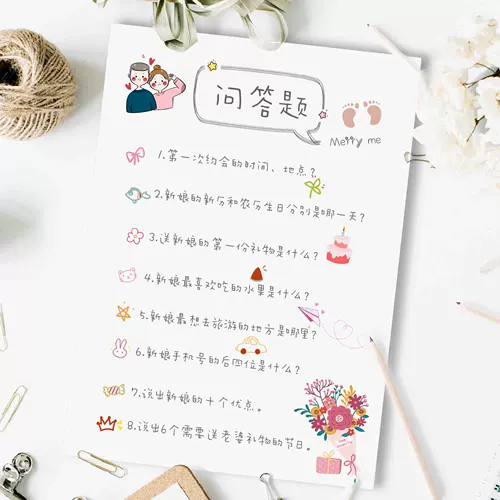 问答题
Merry me
1.第一次约会的时间、地点？
2.新娘的新历和农历生日分别是哪一天？
3.送新娘的第一份礼物是什么？
4.新娘最喜欢吃的水果是什么？
5.新娘最想去旅游的地方是哪里？
6.新娘手机号的后四位是什么？
7.说出新娘的十个优点。
8.说出6个需要送老婆礼物的节日。